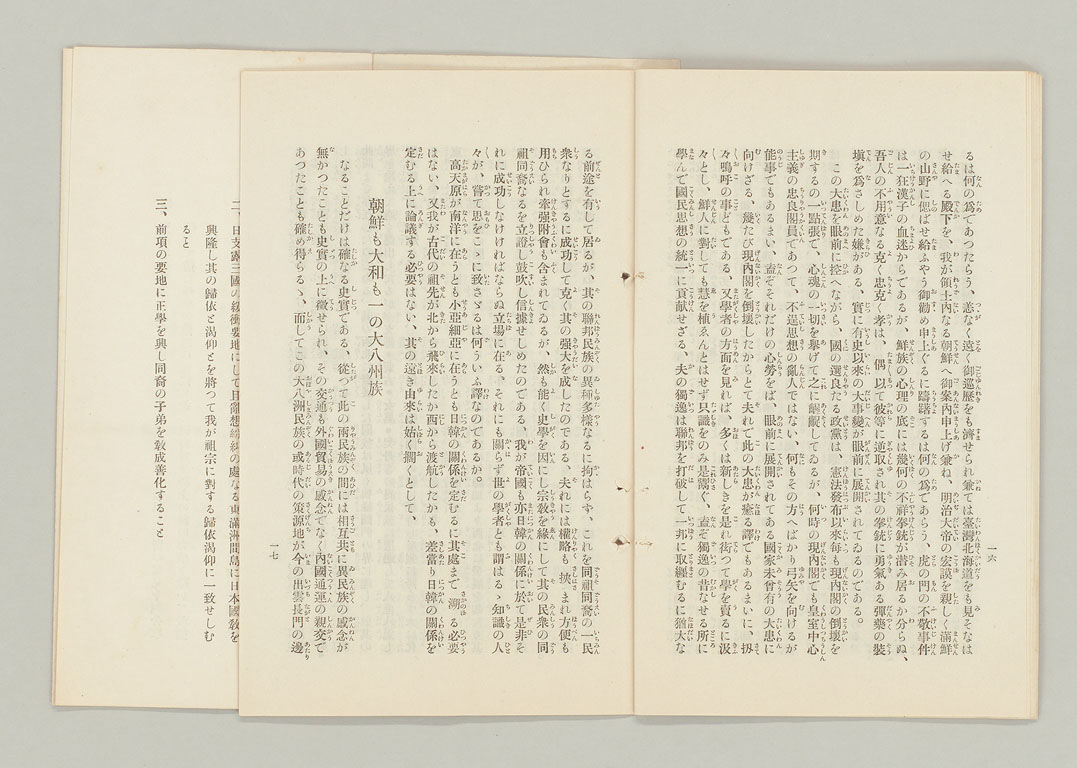 一六
るは何の爲であつたらう、恙なく遠く御巡歷をも濟せられ兼ては臺灣北海道をも見そなは
せ給へる殿下を、我が領土內なる朝鮮へ御案內申上げ兼ね、明治大帝の宏謨を親しく滿鮮
の山野に偲ばせ給ふやう御勸め申上ぐるに躊躇するは何の爲であらう、虎の門の不敬事件
は一狂漢子の血迷からであるが、鮮族の心理の底には幾何の不祥拳銃が潛み居るか分らぬ、
吾人の不用意なる克く忠克く孝は、偶以て彼等に逆取され其の拳銃に勇氣ある彈藥の裝
塡を爲さしめた嫌がある、實に有史以來の大事變が眼前に展開されてゐるのである。
この大患を眼前に控へながら、國の選良たる政黨は、憲法發布以來每も現內閣の倒壞を
期するの一點張で、心魂の一切を擧げて之に齷齪してゐるが、何時の現內閣でも皇室中心
主義の忠良閣員であつて、不逞思想の亂人ではない、何もその方へばかり弓矢を向けるが
能事でもあるまい、盍ぞそれだけの心勞をば、眼前に展開されてある國家未曾有の大患に
向けざる、幾たび現內閣を倒壞したからとて夫れで此の大患が癒る譯でもあるまいに、扨
々嗚呼の事どもである、又學者の方面を見れば、多くは新しきを是れ街つて學を賣るに汲
々とし、鮮人に對しても慧を植ゑんとはせず只識をのみ是れ鬻ぐ、盍ぞ獨逸の昔なせる所に
學んで國民思想の統一に貢獻せざる、夫の獨逸は聯邦を打破して一邦に取纒むるに猶大な
る前途を有して居るが、其の聯邦民族の異種多樣なるに拘はらず、これを同祖同裔の一民
衆なりとするに成功して克く其の强大を成したのである、夫れには權略も挾まれ方便も
用ひられ牽强附會も含まれてゐるが、然も能く史學を因にし宗敎を緣にして其の民衆の同
祖同裔なるを立證し鼓吹し信據せしめたのである、我が帝國も亦日韓の關係に於て是非そ
れに成功しなければならぬ立場に在る、それにも關らず世の學者とも謂はるゝ知識の人
々が、嘗て思をこゝに致さざるは何ういふ譯なのであるか。
高天原が南洋に在うとも小亞細亞に在うとも日韓の關係を定むるに其處まで溯る必要
はない、又我が古代の祖先が北から飛來したか西から渡航したかも、差當り日韓の關係を
定むる上に論議する必要はない、其の遠き由來は姑く擱くとして、
朝鮮も大和も一の大八州族
なることだけは確なる史實である、從つて此の兩民族の間には相互共に異民族の感念が
無かつたことも史實の上に徵せられ、その交通も外國貿易の感念でなく內國通運の親交で
あつたことも確め得らるゝ、而してこの大八洲民族の或時代の策源地が今の出雲長門の邊
一七
二、日支露三國の緩衝要地にして且亂想の處なる東滿洲間島に日本國敎を
興隆し其の歸依と渴仰とを將つて我が祖宗に對する歸依渴仰に一致せしむ
ると
三、前項の要地に正學を興し同裔の子弟を敎成善化すること